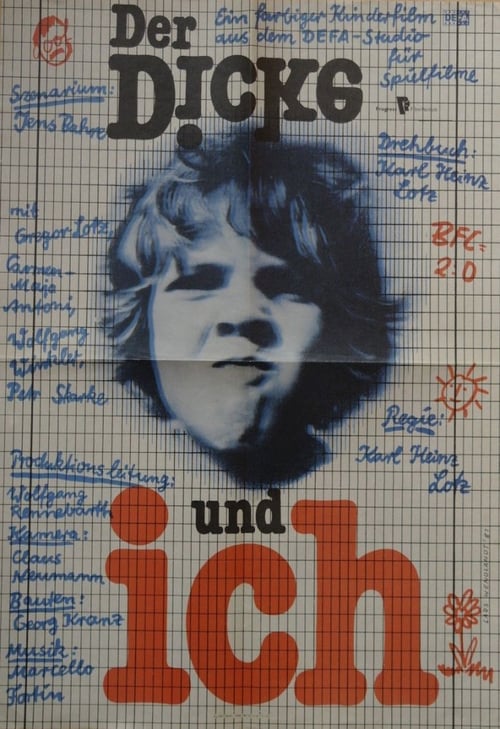 Der
Dicke
Ein farbiger Kinderfilm
aus dem DEFA-Studio
für
Spielfilme
DEFA
Progress
Szenarium:
Jens Bahre
Drehbuch:
Karl Heinz
Lotz
mit
Gregor Lotz,
Carmen-
Maja
Antoni,
Wolfgang
Winkler,
Petr Skarke
BFC:
2:0
Regie:
Karl Heinz
Lotz
Produktionsleitung:
Wolfgang
Rennebarth
Kamera:
Claus
Neumann
Bauten:
Georg Kranz
Musik:
Marcello
Fortin
und
ich